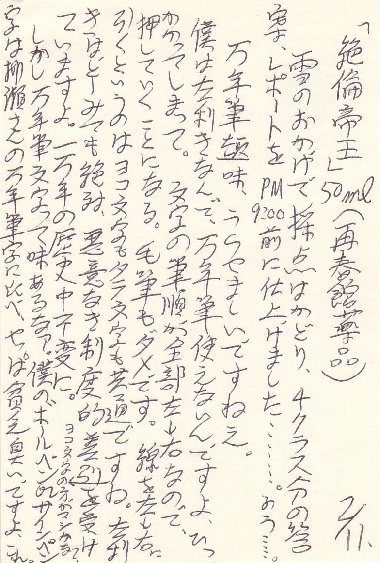 「絶倫帝王」50ml(再春館薬品)
2/11.
雪のおかげで採点はかどり、4クラス分の答
案、レポートを PM9:00前に仕上げました……。おう…。
万年筆趣味、うらやましいですねえ。
僕は左利きなんで、万年筆使えないんですよ、ひっ
かかってしまって。文字の筆順が全部左→右なので、
押していくことになる。毛筆もダメです。線を左→右に
引くというのはヨコ文字もタテ文字も共通ですね。左利
きはどーみても絶対、悪意なき制度的差別を受け
ていますよ。一万年の歴史中不変に。
ヨコ文字の方がマシかな?
しかし万年筆文字って味あるなァ。僕のボールペン的サインペン
字は柳瀬さんの万年筆字に比べ、やっぱ貧乏臭いですよ、これ。